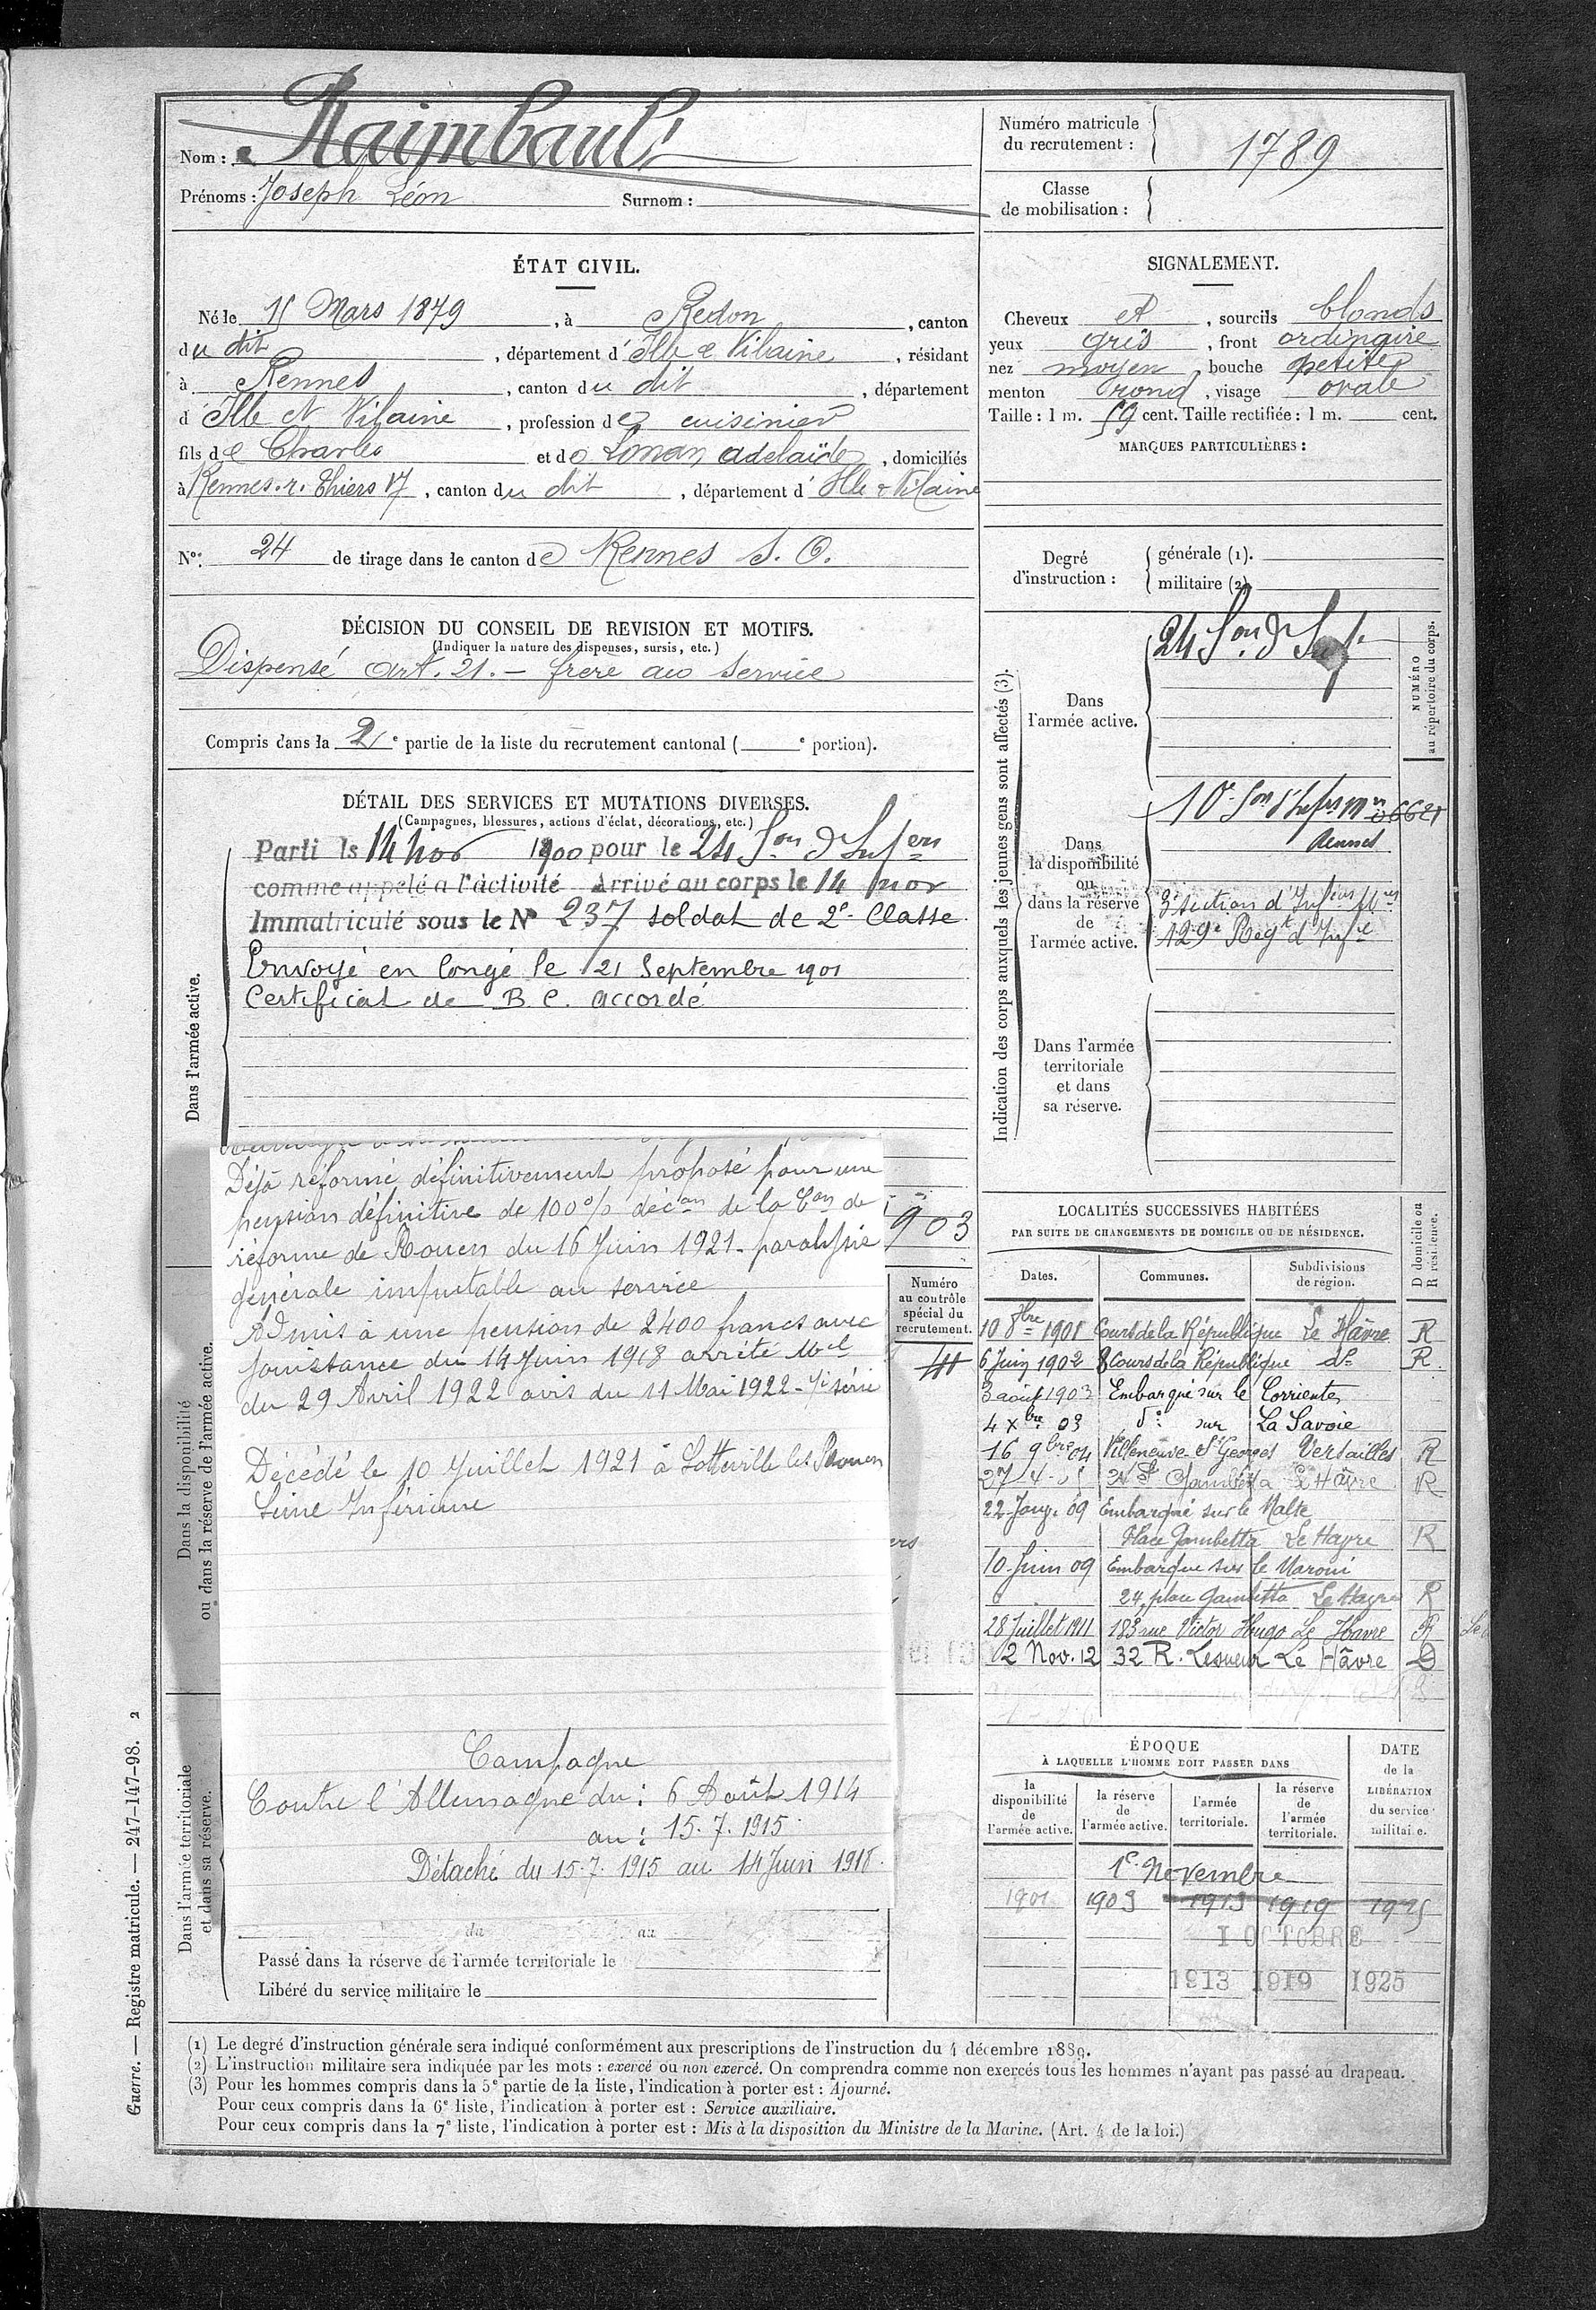 Nom : Raimbault
Prénoms : Joseph Léon Surnom :
Numéro matricule du recrutement : 1789
Classe de mobilisation :
ÉTAT CIVIL.
Né le 15 Mars 1879, à Redon, canton
du dit, département d'Ille & Vilaine, résidant
à Rennes, canton du dit, département
d'Ille et Vilaine, profession de cuisinier
fils de Charles et de Lonan adelaïde, domiciliés
à Rennes. r. Thiers 17, canton du dit, département d'Ille & Vilaine
N° 24 de tirage dans le canton de Rennes S. O.
SIGNALEMENT.
Cheveux et, sourcils blonds
yeux gris, front ordinaire
nez moyen, bouche petite
menton rond, visage ovale
Taille : 1 m. 59 cent. Taille rectifiée : 1 m. cent.
MARQUES PARTICULIÈRES :
Degré d'instruction :
générale (1).
militaire (2)
DÉCISION DU CONSEIL DE REVISION ET MOTIFS.
(Indiquer la nature des dispenses, sursis, etc.)
Dispensé art. 21. – frère au service
Compris dans la 2e partie de la liste du recrutement cantonal ( e portion).
DÉTAIL DES SERVICES ET MUTATIONS DIVERSES.
(Campagnes, blessures, actions d'éclat, décorations, etc.)
Dans l'armée active.
Parti le 14 nov 1900 pour le 24 Son d'Infers
comme appelé a l'activité Arrivé au corps le 14 nov
Immatriculé sous le N° 237 soldat de 2e Classe
Envoyé en Congé le 21 Septembre 1901
Certificat de B. C. accordé
Déjà réformé définitivement proposé pour une
pension définitive de 100 % décon de la Con de
réforme de Rouen du 16 Juin 1921 - paralysie
générale imputable au service
Admis à une pension de 2400 francs avec
jouissance du 14 Juin 1918 arrêté Mel
du 29 Avril 1922 avis du 11 Mai 1922 - série
Décédé le 10 Juillet 1921 à Sotteville les Rouen
Seine Inférieure
903
Numéro au contrôle spécial du recrutement.
Dans la disponibilité ou dans la réserve de l'armée active.
Dans l'armée territoriale et dans sa réserve.
Campagne
Contre l'Allemagne du : 6 Août 1914
au : 15.7.1915
Détaché du 15.7.1915 au 14 Juin 1918.
du au
Passé dans la réserve de l'armée territoriale le
Libéré du service militaire le
Indication des corps auxquels les jeunes gens sont affectés (3).
NUMÉRO au répertoire du corps.
Dans l'armée active.
24 Son d'Inf
Dans la disponibilité ou dans la réserve de l'armée active.
10e Son d'Infirs Mres
Rennes
3e section d'Infirs Mres
129e Regt d'Infie
Dans l'armée territoriale et dans sa réserve.
LOCALITÉS SUCCESSIVES HABITÉES
PAR SUITE DE CHANGEMENTS DE DOMICILE OU DE RÉSIDENCE.
Dates. Communes. Subdivisions de région. D domicile ou R résidence.
10 8bre 1901 Cours de la République Le Hâvre R
6 Juin 1902 8 Cours de la République do R.
3 août 1903 Embarqué sur le Corrientes
4 Xbre 03 do sur La Savoie
16 9bre 04 Villeneuve St Georges Versailles R
Gambetta Le Hâvre R
22 Janv. 09 Embarqué sur le Malte
Place Gambetta Le Havre R
10 Juin 09 Embarque sur le Maroni
24, place Gambetta Le Havre R
28 Juillet 1911 183 rue Victor Hugo Le Havre R
2 Nov. 12 32 R. Lesueur Le Hâvre D
ÉPOQUE
À LAQUELLE L'HOMME DOIT PASSER DANS
la disponibilité de l'armée active.
la réserve de l'armée active.
l'armée territoriale.
la réserve de l'armée territoriale.
DATE de la LIBÉRATION du service militaire.
1er Novembre
1901 1903 1913 1919 1925
1 OCTOBRE
1913 1919 1925
(1) Le degré d'instruction générale sera indiqué conformément aux prescriptions de l'instruction du 4 décembre 1889.
(2) L'instruction militaire sera indiquée par les mots : exercé ou non exercé. On comprendra comme non exercés tous les hommes n'ayant pas passé au drapeau.
(3) Pour les hommes compris dans la 5e partie de la liste, l'indication à porter est : Ajourné.
Pour ceux compris dans la 6e liste, l'indication à porter est : Service auxiliaire.
Pour ceux compris dans la 7e liste, l'indication à porter est : Mis à la disposition du Ministre de la Marine. (Art. 4 de la loi.)
Guerre. — Registre matricule. — 247-147-98. 2